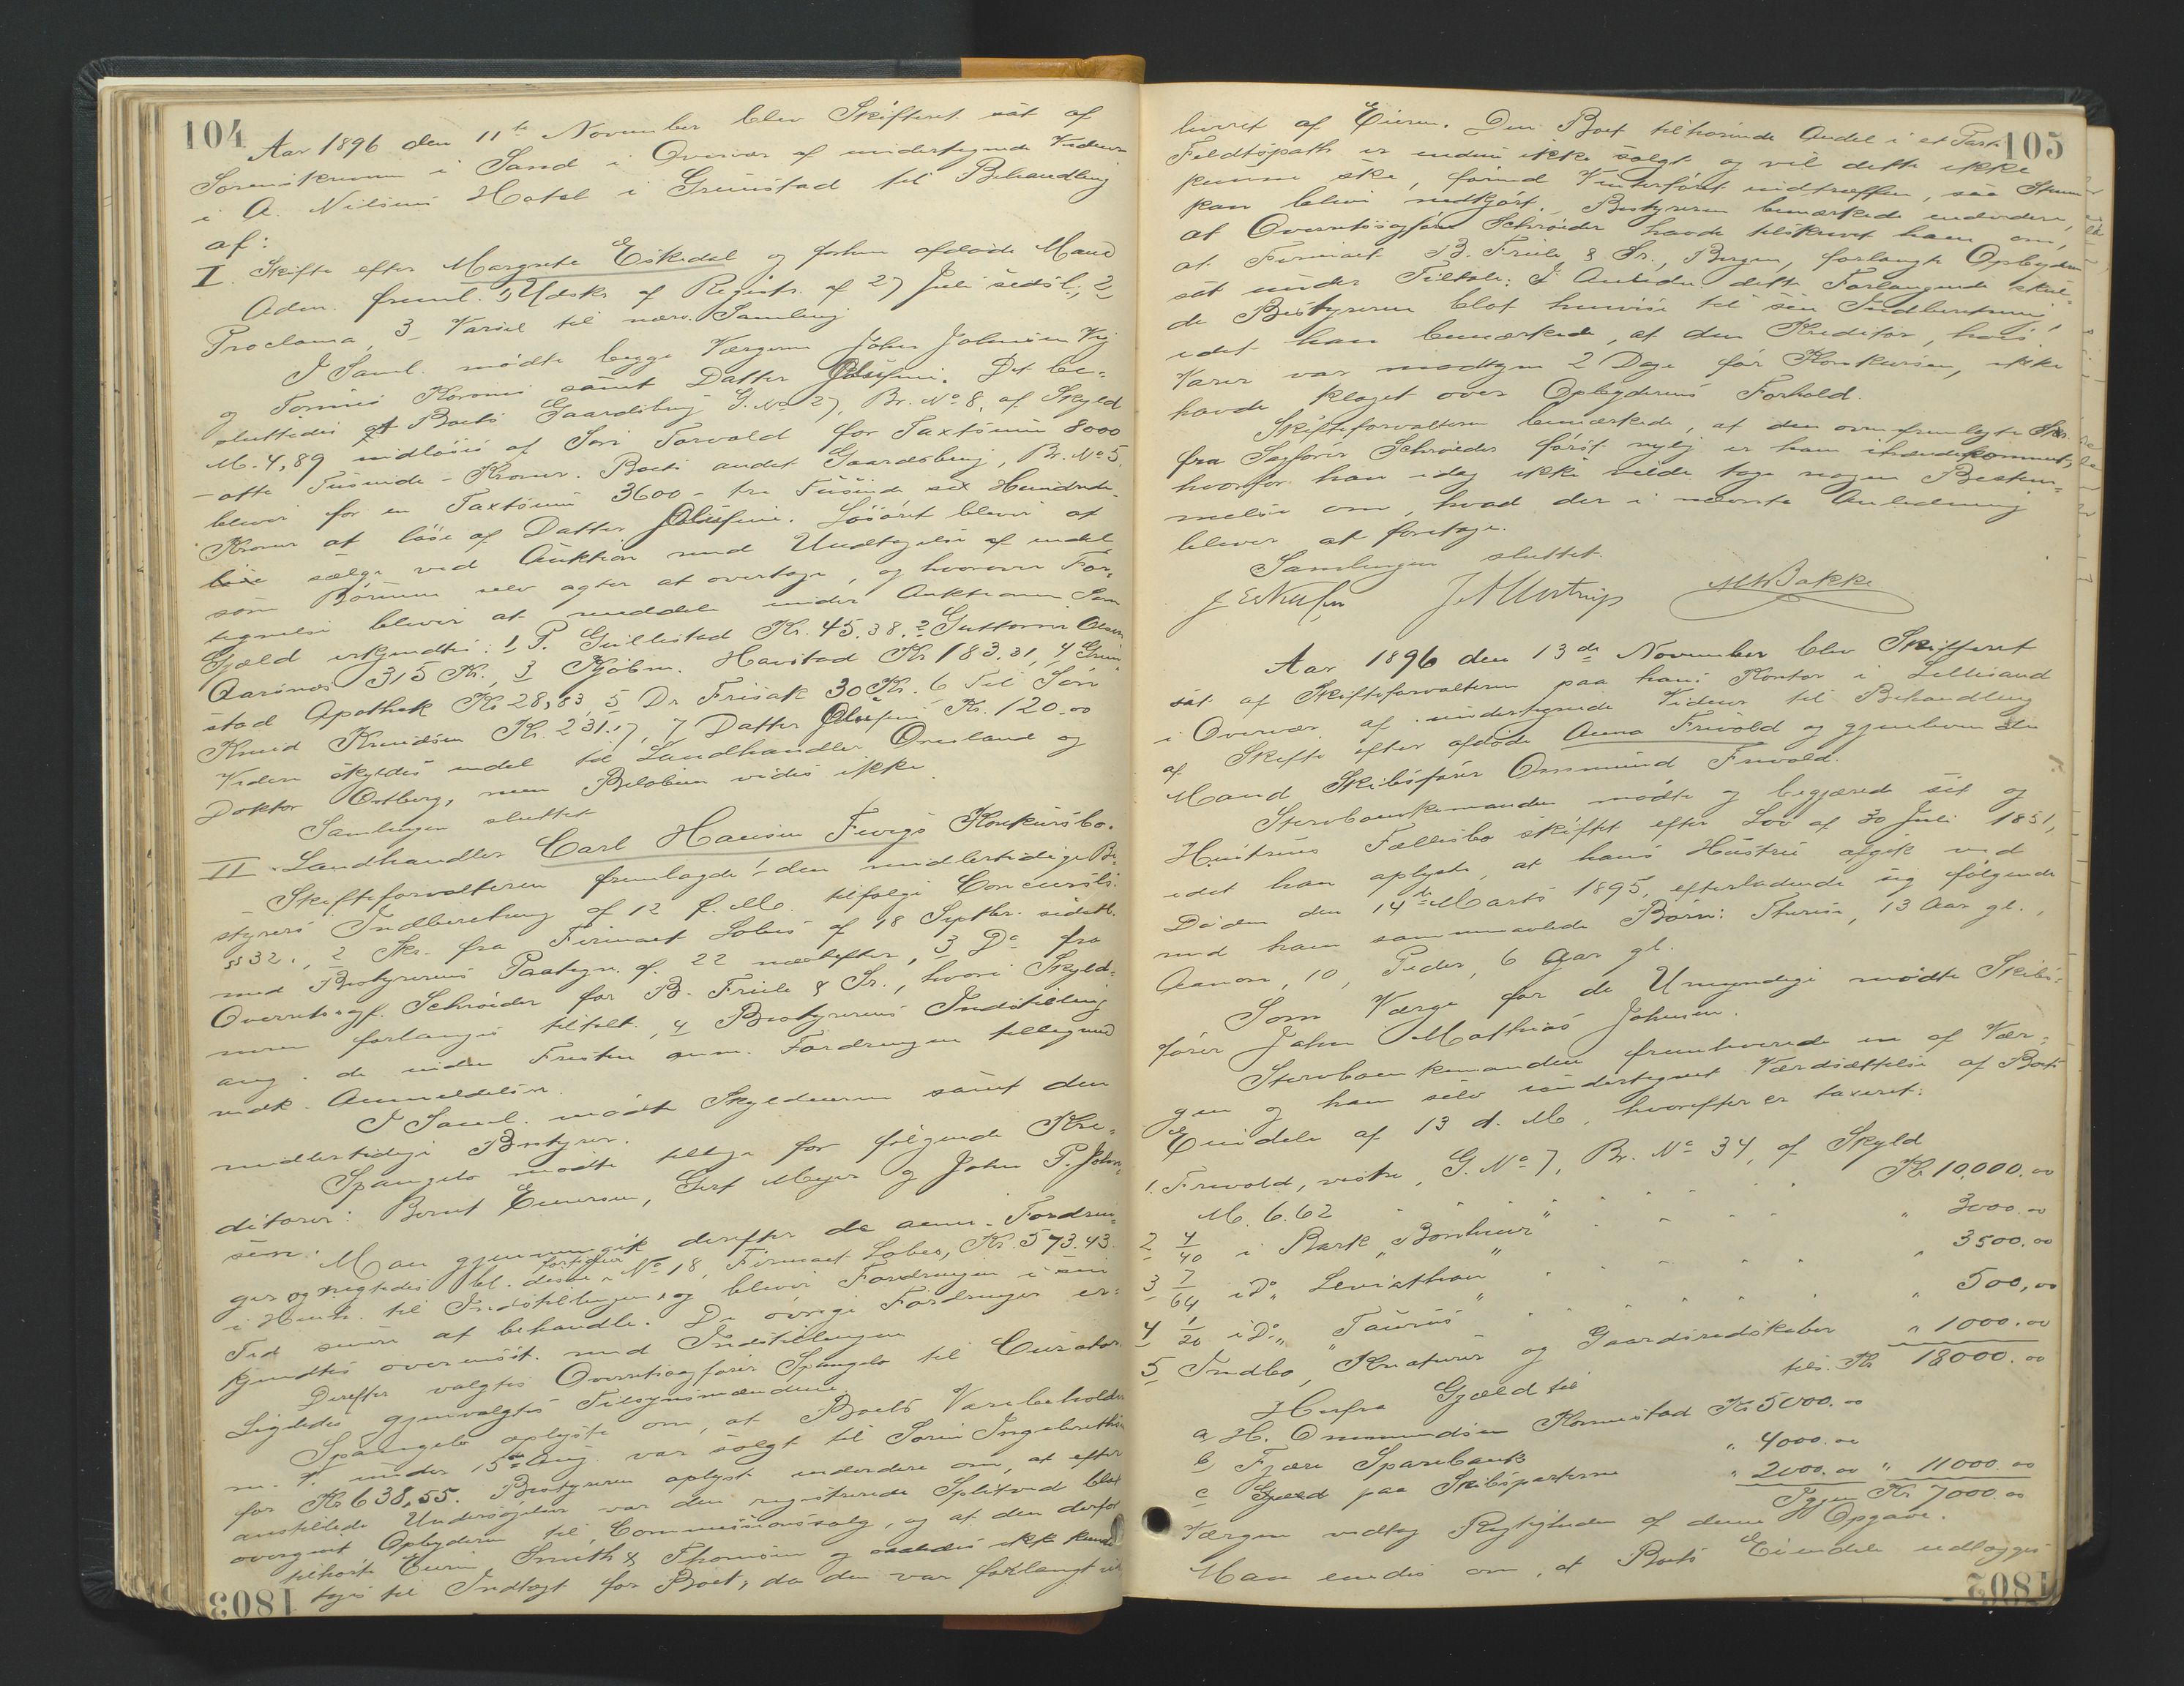 104
Aar 1896 den 11te November blev Skifteret sat af
Sorenskriveren i Sand i Overvær af undertegnede Vidner
i A. Nilsens Hotel i Grimstad til Behandling
af:
I. Skifte efter Margrete Eskedal og forhen afdøde Mand
Adm. freml. 1, Udskr. af Registr. af 27 Juli sidstl., 2
Proclama, 3 Varsel til nærv. Samling
I Saml. mødte begge Værgerne John Johnsen Vig
og Tomine samt Datter Olufine. Det be-
sluttedes at Boets Gaardsbrug G. No 27, Br. No 8, af Skyld
M. 4,89 indløses af Søn Torvald for Taxtsum 8000
- otte Tusinde - Kroner. Boets andet Gaardsbrug, Br. No 5,
bliver for en Taxtsum 3600 - tre Tusinde sex Hundrede
Kroner at løse af Datter Olufine. Løsøret bliver at
løse sælge ved Auktion med Undtagelse af endel
som Børnene selv agter at overtage, og hvorover For-
tegnelse bliver at meddele under Auktionen. Som
Gjæld erkjendtes: 1 P. Gullestad Kr. 45.38. 2 Guttorm Olsen
Aarsnæs 315 Kr., 3 Kjøbm. Havstad Kr 183.31, 4 Grim-
stad Apothek Kr 28,83, 5 Dr Frisak 30 Kr. 6 Til Søn
Knud Knudsen Kr. 231.17, 7 Datter Olufine Kr. 120.00
Videre skyldes endel til Landhandler Omland og
Doktor Østberg, men Beløbene vides ikke.
Samlingen sluttet
II. Landhandler Carl Hansen Fevigs Konkursbo.
Skifteforvalteren fremlagde 1 den midlertidige Be-
styrers Indberetning af 12 f. M. tilfølge Concursl.
§ 32., 2 Skr. fra Firmaet Lobes af 18 Septbr. sidstl.
med Bestyrerens Paategn. af 22 næstefter, 3 Do fra
Overretssagf. Schrøder for B. Friele & Sr., hvori Skyld-
neren forlanges tiltalt., 4 Bestyrerens Indstilling
ang. de inden Fristen anm. Fordringer tilligemed
vedk. Anmeldelser.
I Saml. mødte Skyldneren samt den
midlertidige Bestyrer.
Spangelo mødte tillige for følgende Kre-
ditorer: Bernt Evensen, Gert Meyer og John P. John-
sen.
Man gjennemgik derefter de anm. Fordrin-
ger og negtedes bl. disse fortiden No 18, Firmaet Lobes, Kr. 573.43
i Henh. til Indstillingen, og bliver Fordringen i sin
Tid senere at behandle. De øvrige Fordringer er-
kjendtes overensst. med Indstillingen
Derefter valgtes Overretssagfører Spangelo til Curator.
Ligeledes gjenvalgtes Tilsynsmændene.
Spangelo oplyste om, at Boets Varebeholdn.
m. V. under 15de Aug. var solgt til Søren Ingebrethsen
for Kr 638,55. Bestyreren oplyst endvidere om, at efter
anstillede Undersøgelser var den registrerede Splitved blot
overgivet Opbyderen til Commissionssalg, og at den derfor
tilhørte Eieren, Smith & Thomsen og saaledes ikke kunde
tages til Indtægt for Boet, da den var forlangt ud-
1803
105
leveret af Eieren. Den Boet tilhørende Andel i et Parti
Feldtspath er endnu ikke solgt og vil dette ikke
kunne ske, førend Vinterføret indtræffer, saa Stenen
kan blive nedkjørt. Bestyreren bemærkede endvidere,
at Overretssagfører Schrøder havde tilskrevet ham om,
at Firmaet B. Friele & Sr., Bergen, forlangte Opbyderen
sat under Tiltale. I Anledn. dette Forlangende skul-
de Bestyreren blot henvise til sin Indberetning,
idet han bemærkede, at den Kreditor, hvis
Varer var modtagne 2 Dage før Konkursen, ikke
havde klaget over Opbyderens Forhold.
Skifteforvalteren bemærkede, at den ovenfremlagte Skr.
fra Sagfører Schrøder først nylig er ham ihændekommet,
hvorfor han idag ikke vilde tage nogen Bestem-
melse om, hvad der i nævnte Anledning
bliver at foretage.
Samlingen sluttet.
M H Bakke
Aar 1896 den 13de November blev Skifteret
sat af Skifteforvalteren paa hans Kontor i Lillesand
i Overvær af undertegnede Vidner til Behandling
af Skifte efter afdøde Anna Frivold og gjenlevende
Mand Skibsfører Ommund Frivold.
Stervboenkemanden mødte og begjærede sit og
Hustrues Fællesbo skiftet efter Lov af 30 Juli 1851,
idet han oplyste, at hans Hustru afgik ved
Døden den 14de Marts 1895, efterladende sig følgende
med ham sammenavlede Børn: Therese, 13 Aar gl.,
Aanon, 10, Peder, 6 Aar gl.
Som Værge for de Umyndige mødte Skibs-
fører John Mathias Johnsen.
Stervboenkemanden fremleverede en af Vær-
gen og ham selv undertegnet Værdsættelse af Boets
Eiendele af 13 d. M., hvorefter er taxeret:
1. Frivold, vestre, G. No 7, Br. No 34, af Skyld
M. 6.62 Kr 10,000.00
2 4/40 i Bark "Bonheur" " 3000.00
3 7/64 i Do "Leviathan" " 3500.00
4 1/20 i Do "Taurus" " 500,00
5 Indbo, Kreaturer og Gaardsredskaber " 1000.00
tils. Kr 18000.00
Herfra Gjæld til
a, H. Ommundsen Kornestad Kr 5000.00
b, Fjære Sparebank " 4000.00
c Gjæld paa Skibsparterne " 2000.00 " 11000.00
Igjen Kr 7000.00
Værgen vedtog Rigtigheden af denne Opgave.
Man enedes om, at Boets Eiendele udlægges
1802